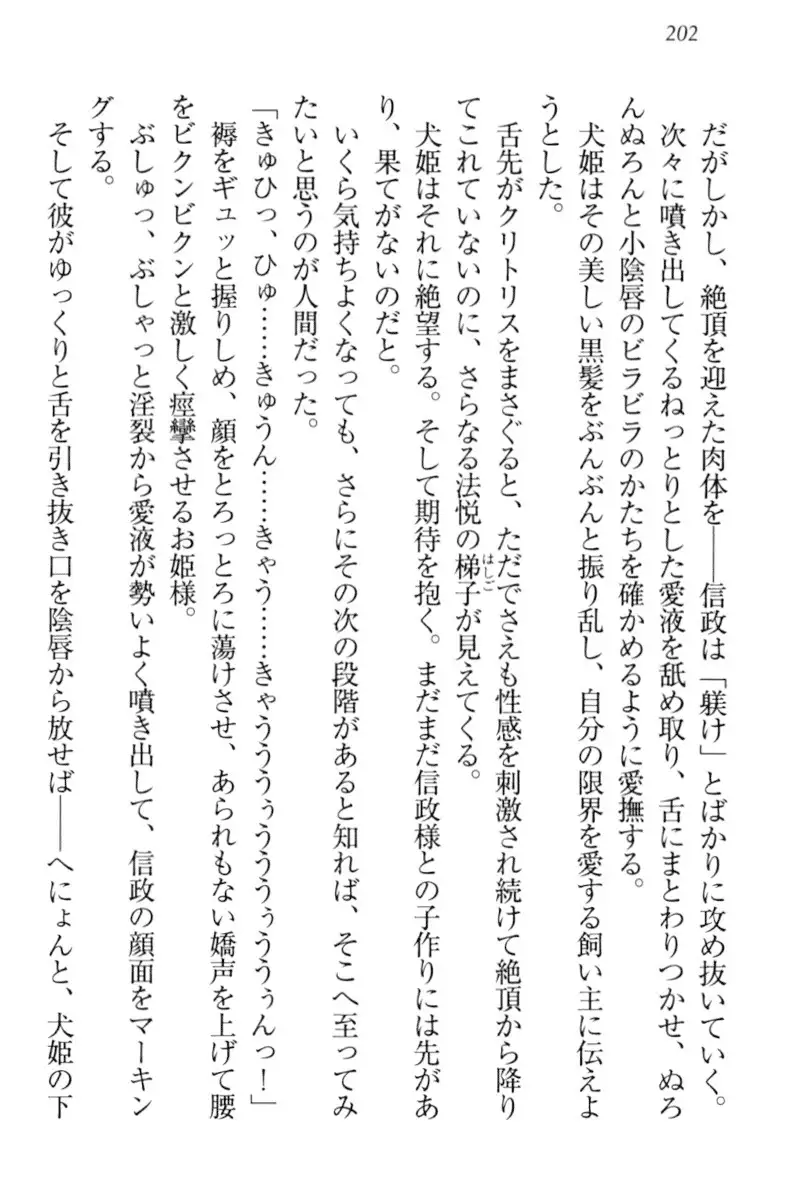 202
だがしかし、絶頂を迎えた肉体を――信政は「躾け」とばかりに攻め抜いていく。
次々に噴き出してくるねっとりとした愛液を舐め取り、舌にまとわりつかせ、ぬろ
んぬろんと小陰唇のビラビラのかたちを確かめるように愛撫する。
犬姫はその美しい黒髪をぶんぶんと振り乱し、自分の限界を愛する飼い主に伝えよ
うとした。
舌先がクリトリスをまさぐると、ただでさえも性感を刺激され続けて絶頂から降り
てこれていないのに、さらなる法悦の梯子が見えてくる。
はしご
犬姫はそれに絶望する。そして期待を抱く。まだまだ信政様との子作りには先があ
り、果てがないのだと。
いくら気持ちよくなっても、さらにその次の段階があると知れば、そこへ至ってみ
たいと思うのが人間だった。
「きゅひっ、ひゅ……きゅうん……きゃう……きゃうううぅうううぅううぅんっ！」
褥をギュッと握りしめ、顔をとろっとろに蕩けさせ、あられもない嬌声を上げて腰
をビクンビクンと激しく痙攣させるお姫様。
ぶしゅっ、ぶしゃっと淫裂から愛液が勢いよく噴き出して、信政の顔面をマーキン
グする。
そして彼がゆっくりと舌を引き抜き口を陰唇から放せば――へにょんと、犬姫の下